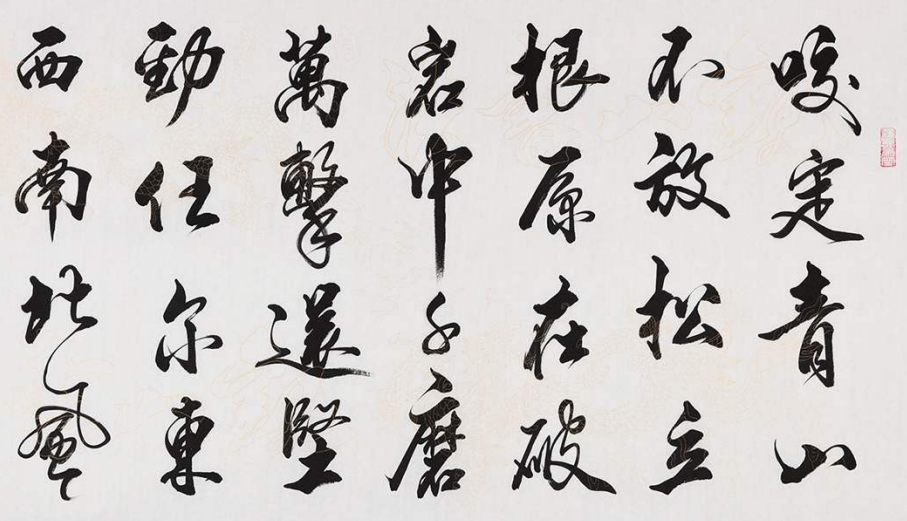 咬定青山
不放松立
根原在破
岩中千磨
萬擊還堅
勁任尔東
西南北風